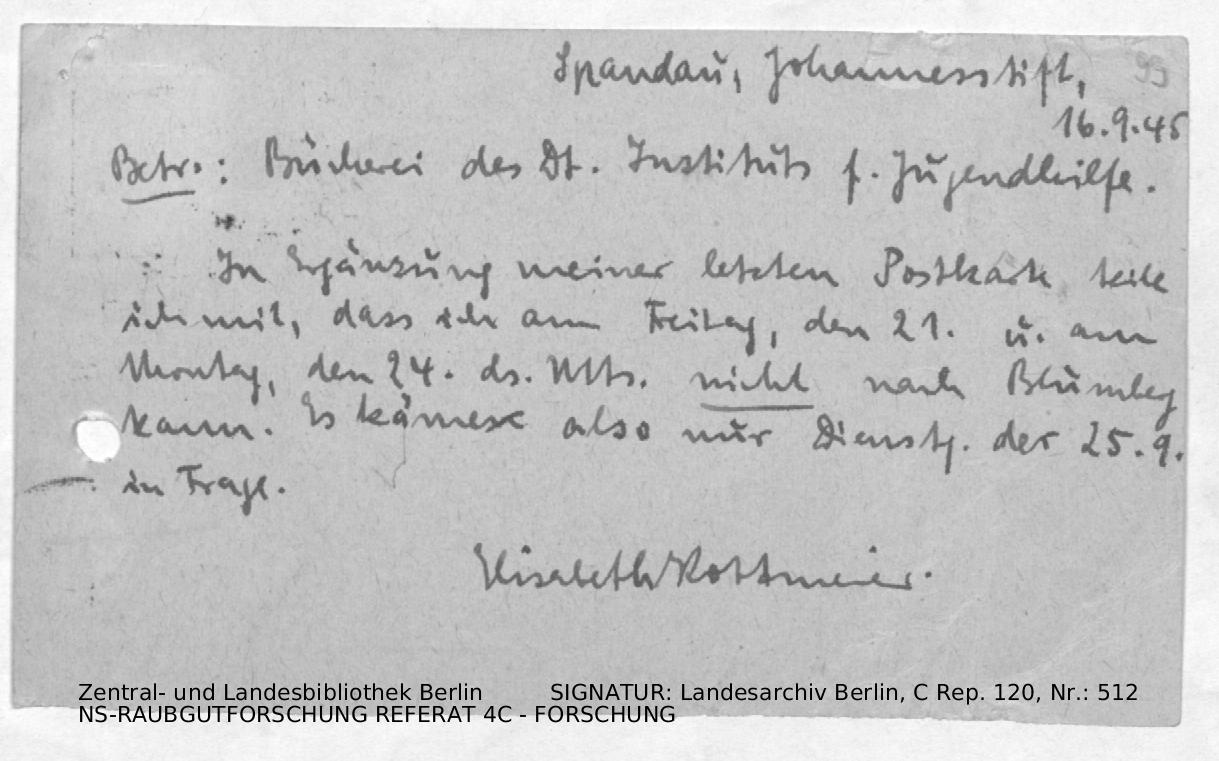 93
Spandau, Johannesstift,
16.9.45
Betr.: Bücherei des Dt. Instituts f. Jugendhilfe.
In Ergänzung meiner letzten Postkarte teile
ich mit, dass ich am Freitag, den 21. u. am
Montag, den 24. ds. Mts. nicht nach Blumbg
kann. Es käme also nur Dienstg. der 25.9.
in Frage.
Elisabeth Rottmeier.
Zentral- und Landesbibliothek Berlin SIGNATUR: Landesarchiv Berlin, C Rep. 120, Nr.: 512
NS-RAUBGUTFORSCHUNG REFERAT 4C - FORSCHUNG